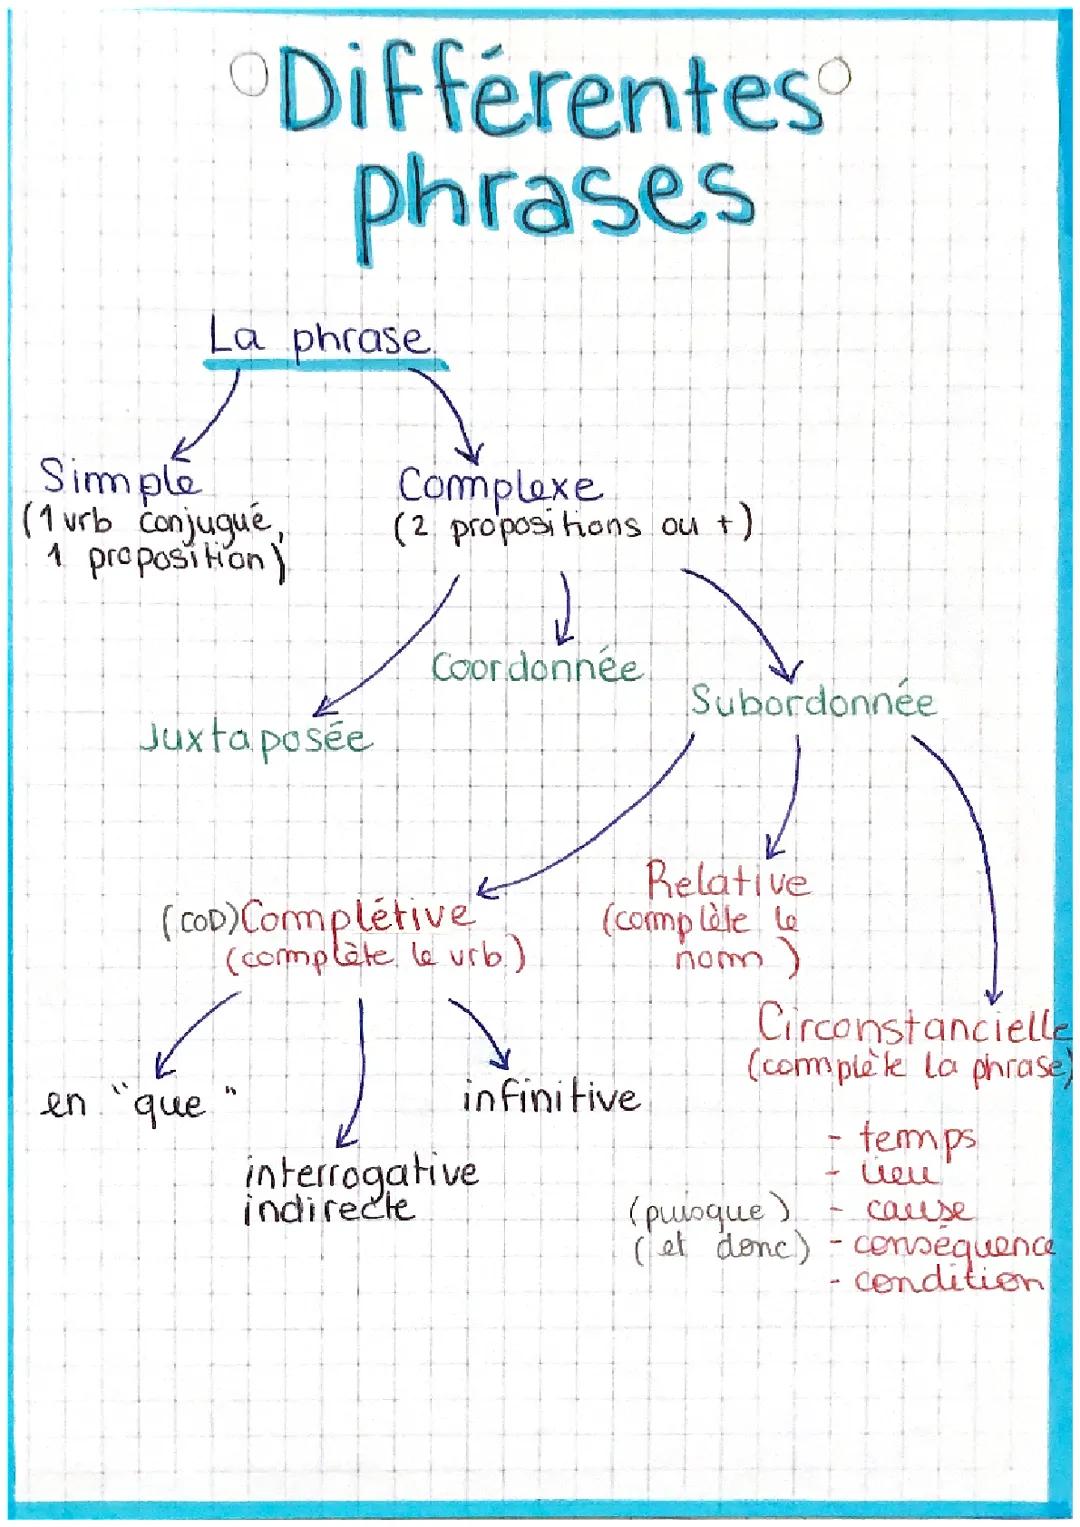 Différentes
phrases
La phrase
Simple
(1 vrb conjugué,
1 proposition)
Complexe
(2 propositions ou +)
Coordonnée
Subordonnée
Juxtaposée
Relative
(complète le
nom)
(COD) Complétive
(complète le vrb)
Circonstancielle
(complète la phrase)
en "que"
infinitive
interrogative
indirecte
- temps
- lieu
(puisque) - cause
(et donc) - conséquence
- condition